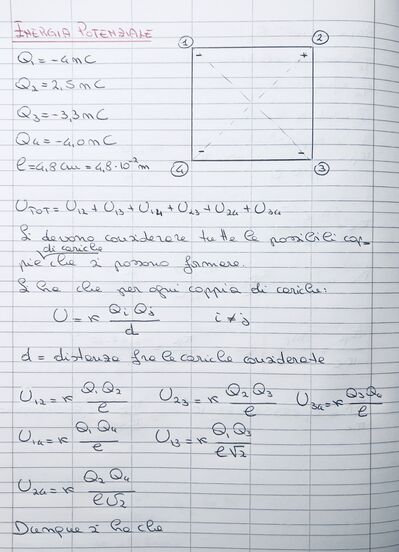 ENERGIA POTENZIALE
Q₁ = -4 nC
Q₂ = 2,5 nC
Q₃ = -3,3 nC
Q₄ = -4,0 nC
l = 4,8 cm = 4,8 · 10⁻² m
1 2
- +
- -
4 3
U_TOT = U₁₂ + U₁₃ + U₁₄ + U₂₃ + U₂₄ + U₃₄
Si devono considerare tutte le possibili cop-
di cariche
pie che si possono formare.
Si ha che per ogni coppia di cariche:
U = k Qᵢ Qⱼ / d i ≠ j
d = distanza fra le cariche considerate
U₁₂ = k Q₁ Q₂ / l U₂₃ = k Q₂ Q₃ / l U₃₄ = k Q₃ Q₄ / l
U₁₄ = k Q₁ Q₄ / l U₁₃ = k Q₁ Q₃ / l√2
U₂₄ = k Q₂ Q₄ / l√2
Dunque si ha che